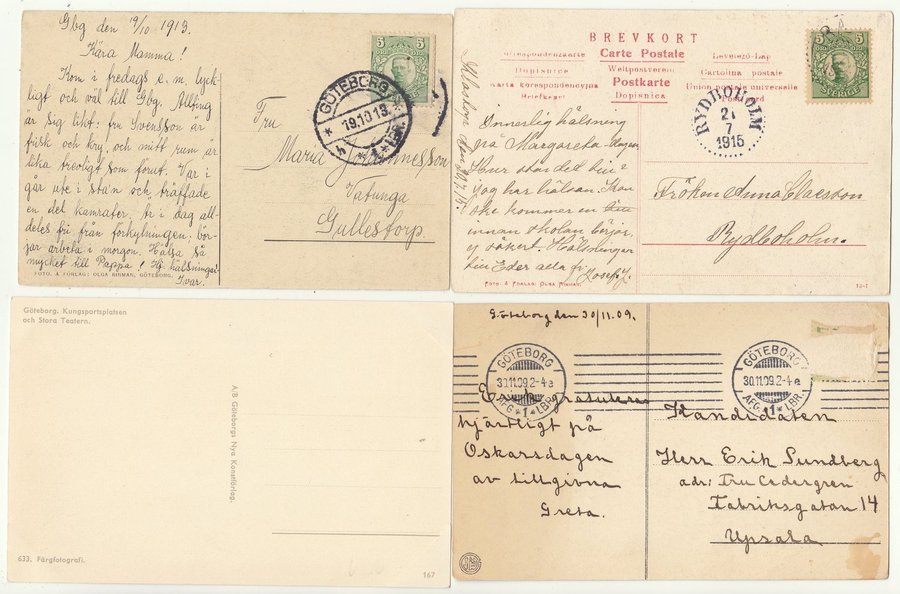 Gbg den 19/10 1913.
Kära Mamma!
Kom i fredags e.m. lyck-
ligt och väl till Gbg. Allting
är sig likt: fru Svensson är
frisk och kry, och mitt rum är
lika trevligt som förut. Var i
går ute i stan och träffade
en del kamrater. Är i dag all-
deles fri från förkylningen; bör-
jar arbeta i morgon. Hälsa så
mycket till Pappa! Hj. hälsningar
Ivar.
FOTO. & FÖRLAG: OLGA RINMAN, GÖTEBORG.
5 5
GÖTEBORG
19.10.13.
* 1 * LBR.
Fru
Maria Johannesson
Vatunga
Gullestorp.
BREVKORT
Correspondenzkarte Carte Postale Levelező-Lap
Dopisnice Weltpostverein Cartolina postale
Karta korespondencyjna Postkarte Union postale universelle
Briefkaart Dopisnica Postcard
5 5
SVERIGE
RYDBOHOLM
21
7
1915
Innerlig hälsning
från Margareta
Hur står det till?
jag har hälsan. Man
ske kommer en tur
innan skolan börjar,
ej säkert. Hälsningar
till Eder alla fr. Josef J.
Fröken Anna Claesson
Rydboholm.
FOTO. & FÖRLAG: OLGA RINMAN.
Göteborg. Kungsportsplatsen
och Stora Teatern.
A/B Göteborgs Nya Konstförlag.
633. Färgfotografi.
167
Göteborg den 30/11.09.
GÖTEBORG
30.11.09.2-4 e
AFG. *1* LBR.
GÖTEBORG
30.11.09.2-4 e
AFG. *1* LBR.
gratuleras
hjärtligt på
Oskarsdagen
av tillgivna
Greta.
Kandidaten
Herr Erik Sundberg
adr: Fru Cedergren
Fabriksgatan 14
Upsala